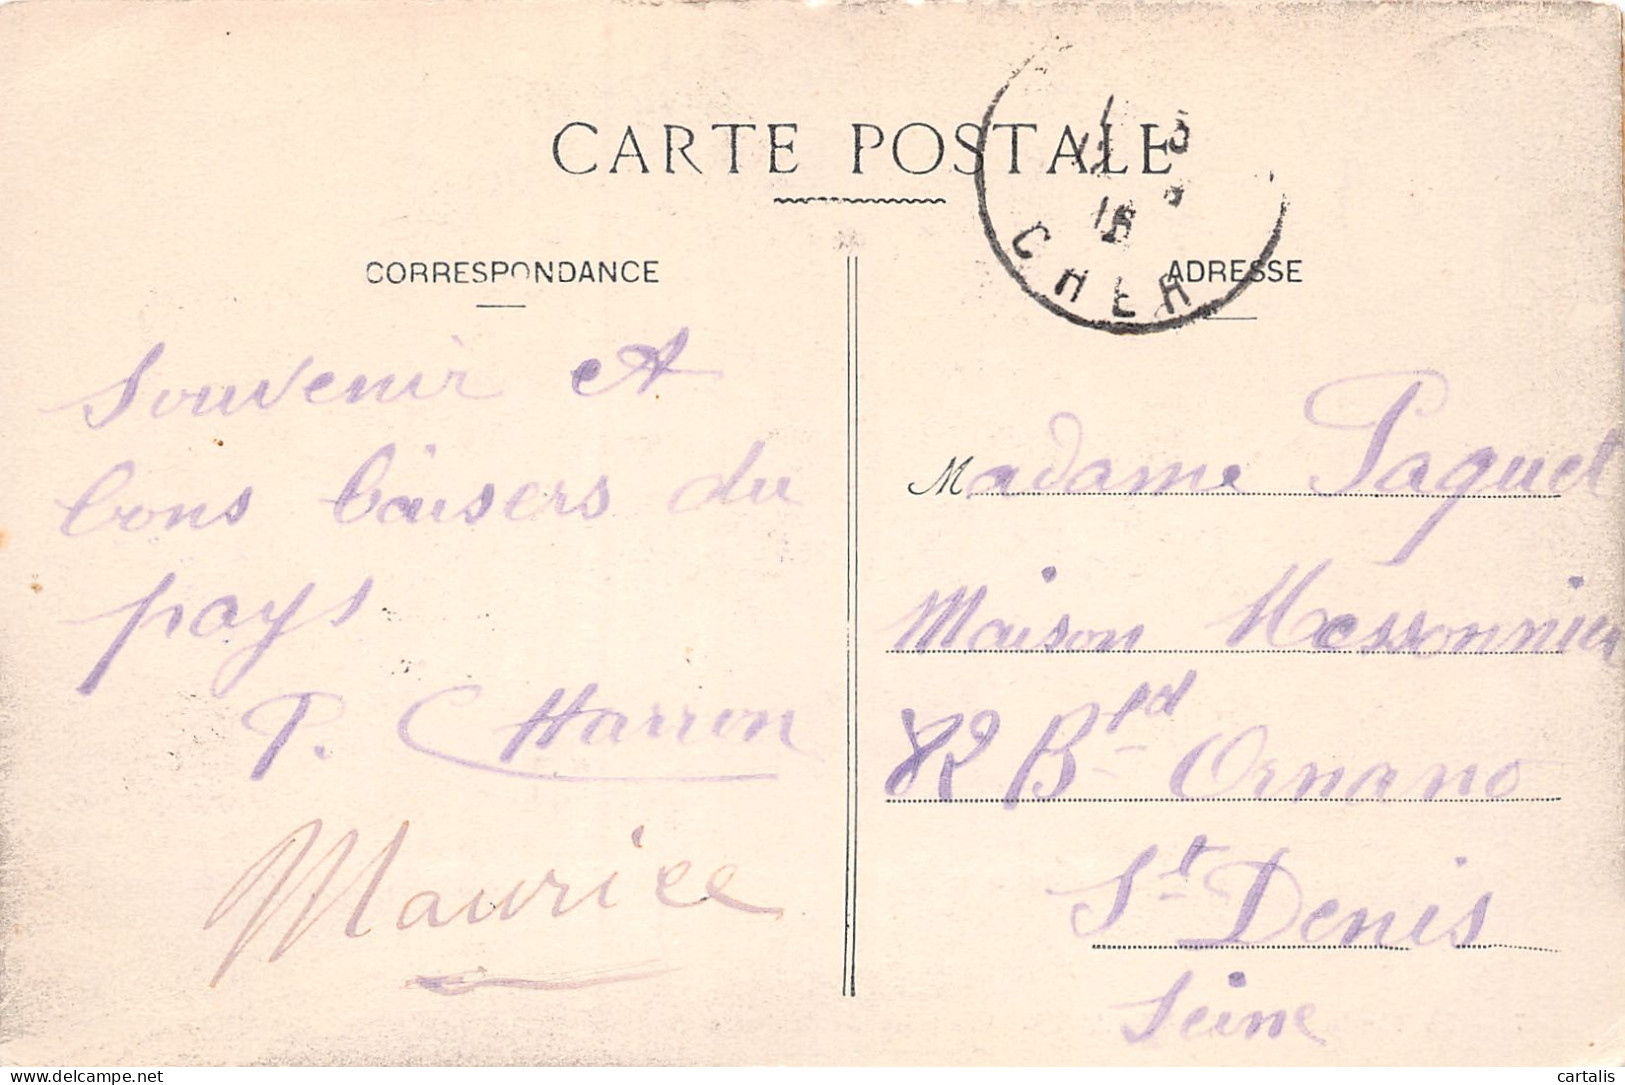 CARTE POSTALE
CHER
CORRESPONDANCE
Souvenir et
bons baisers du
pays
P. CHarron
Maurice
ADRESSE
Madame Paquet
Maison Messonnier
82 Bld Ornano
St Denis
Seine
delcampe.net
cartalis